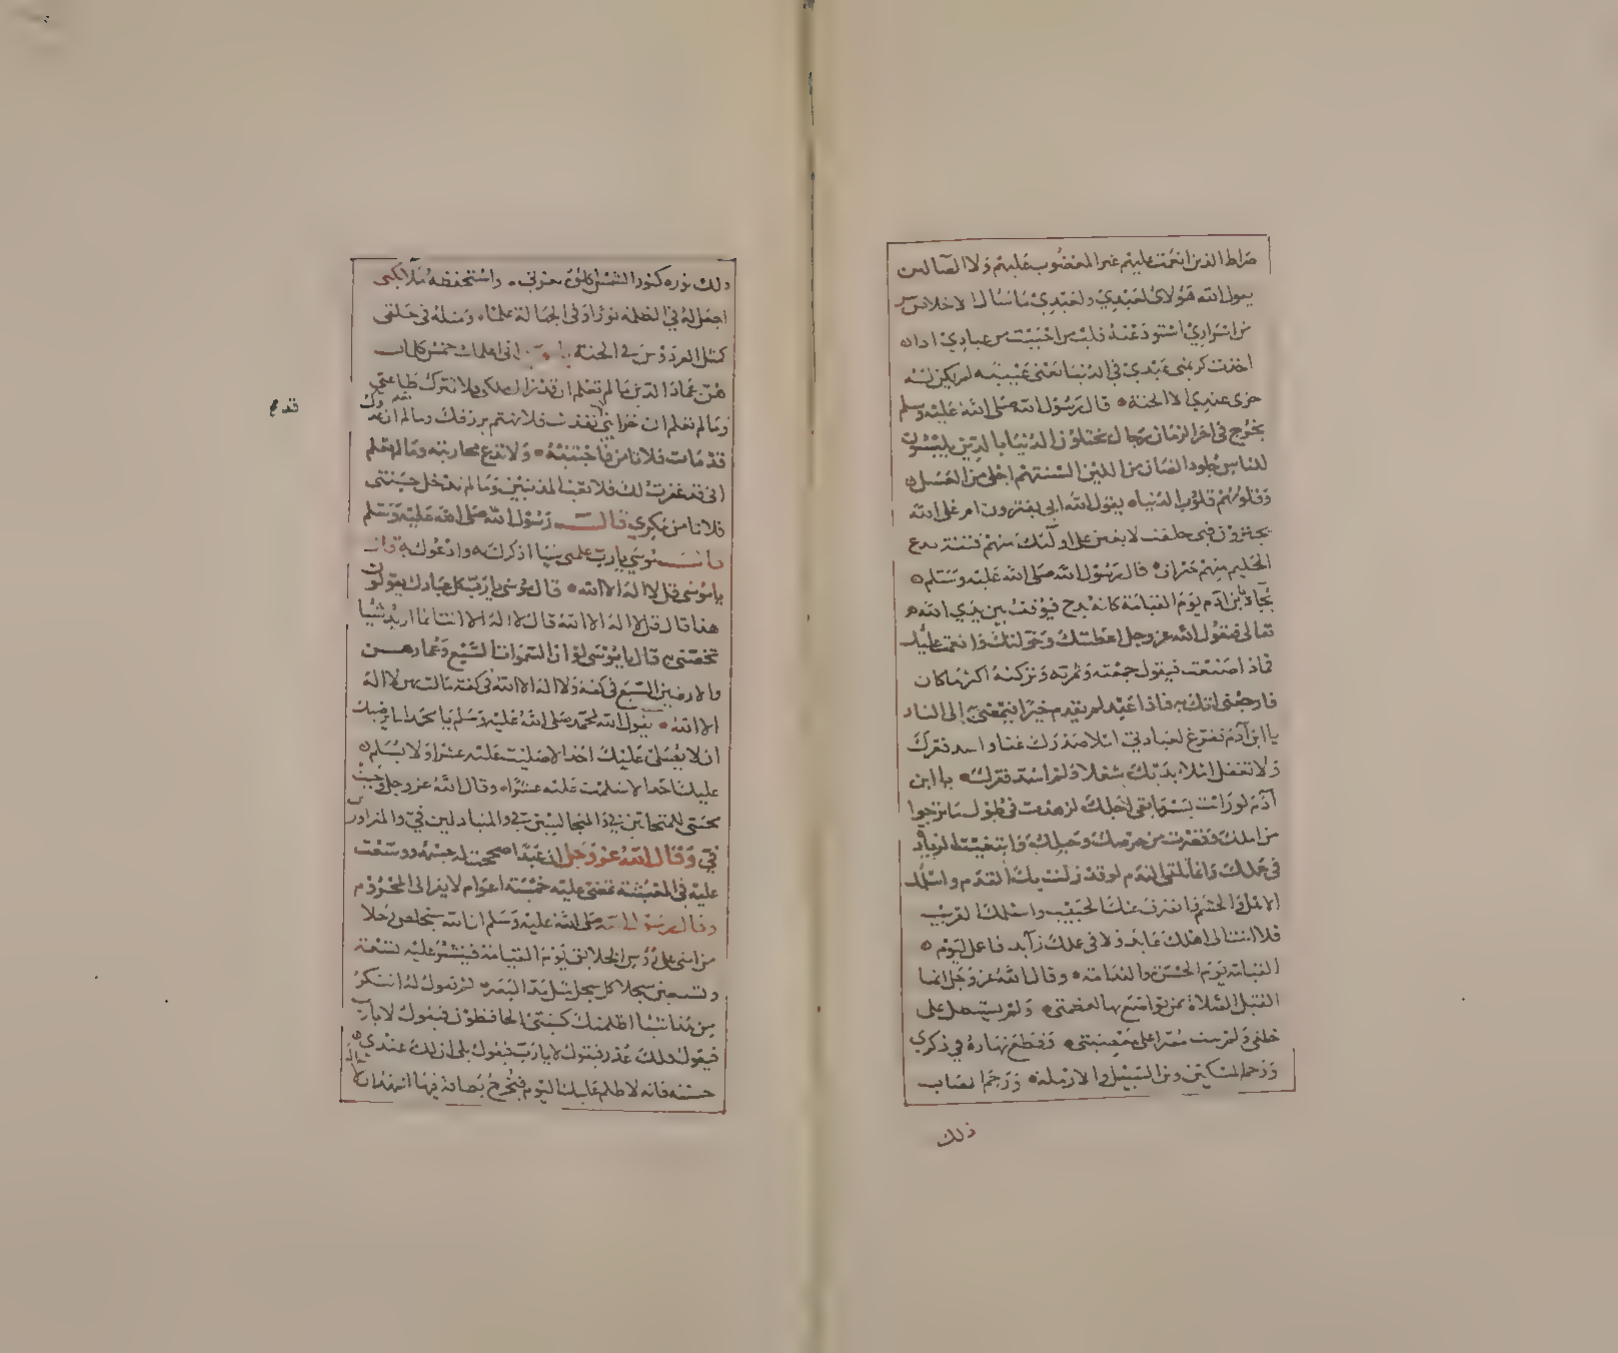 صراط الذين انعمت عليهم غير المغضوب عليهم ولا الضالين
يقول الله هولاى لعبدي ولعبدي ما سال الاخلاص سر
من اسراري استودعته قلب من احببت من عبادي اذا
اخذت كريمتى عبدي في الدنيا يعنى عينيه لم يكن له
جزى عندي الا الجنة قال رسول الله صلى الله عليه وسلم
يخرج في اخر الزمان رجال يختلون الدنيا بالدين يلبسون
للناس جلود الضان من اللين السنتهم احلى من العسل
وقلوبهم قلوب الدنياب يقول الله ابى يغترون ام على الله
يجترون فبى حلفت لابعثن على اولئك منهم فتنة تدع
الحليم منهم حيران قال رسول الله صلى الله عليه وسلم
يجاء بابن ادم يوم القيامة كانه بدج فيوقف بين يدي الله
تعالى فيقول الله عز وجل اعطيتك وخولتك وانعمت عليك
فماذا صنعت فيقول جمعته وثمرته وتركته اكثر ما كان
فارجعنى اتك به فاذا عبد لم يقدم خيرا فيمضى به الى النار
يا ابن آدم تفرغ لعبادتي املا صدرك غنا واسد فقرك
ولا تفعل املا يديك شغلا ولم اسد فقرك يا ابن
آدم لو رايت يسير ما بقى اجلك لزهدت في طول ما ترجوا
من املك وقصرت من حرصك وحيلك وابتغيت الزيادة
في عملك وانما تلقى الندم لو قد زلت بك القدم واسلمك
الاهل والحشم وانصرف عنك الحبيب واسلمك القريب
فلا انت الى اهلك عايد ولا في عملك زايد فاعمل ليوم
القيامة يوم الحسرة والندامة وقال الله عز وجل انما
اتقبل الصلاة ممن تواضع بها لعظمتى ولم يستطل على
خلقى ولم يبت مصرا على معصيتى وقطع نهاره في ذكري
ورحم المسكين وبن السبيل والارملة ورحم المصاب
ذلك
ذلك نوره كنور الشمس اكلؤه بعزتى واستحفظه ملائكتى
اجعل له في الظلمة نورا وفى الجهالة علما ومثله في خلقى
كمثل الفردوس في الجنة انى اعلمك خمس كلمات
هن عماد الدين ما لم تعلم ان قد زال ملكى فلا تترك طاعتى
وما لم تعلم ان خزائنى نفدت فلا تهتم برزقك وما لم ان عدوك
قدع
قد مات فلا تامن فاجئته ولا تدع محاربته وما لم تعلم
انى قد غفرت لك فلا تعب المذنبين وما لم تدخل جنتى
فلا تامن مكري قال رسول الله صلى الله عليه وسلم
قال موسى يارب علمى شيا اذكرك به وادعوك به قال
يا موسى قل لا اله الا الله قال موسى يارب كل عبادك يقولون
هذا قال قل لا اله الا الله قال لا اله الا انت انما اريد شيا
تخصنى به قال يا موسى لو ان السموات السبع وعمارهن
والارضين السبع في كفة ولا اله الا الله في كفة مالت بهن لا اله
الا الله يقول الله لمحمد صلى الله عليه وسلم يا محمد اما يرضيك
ان لا يصلى عليك احد الا صليت عليه عشرا ولا يسلم
عليك احد الا سلمت عليه عشرا وقال الله عز وجل وجبت
محبتى للمتحابين في والمتجالسين في والمتبادلين في والمتزاورين
في وقال الله عز وجل ان عبدا اصححت له جسمه ووسعت
عليه في المعيشة تمضى عليه خمسة اعوام لا يفد الى لمحروم
وقال رسول الله صلى الله عليه وسلم ان الله سيخلص رجلا
من امتى على رؤس الخلائق يوم القيامة فينشر عليه تسعة
وتسعين سجلا كل سجل مثل مد البصر ثم يقول له اتنكر
من هذا شيا اظلمتك كتبتى الحافظون فيقول لا يارب
فيقول افلك عذر فيقول لا يارب فيقول بلى ان لك عندي
حسنة فانه لا ظلم عليك اليوم فيخرج بطاقة فيها اشهد ان